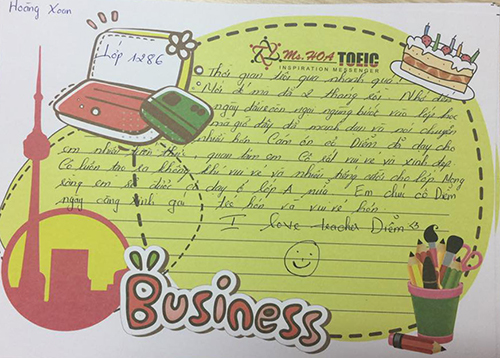 Hoàng Xoan
Lớp 1286
Ms.HOA TOEIC
INSPIRATION MESSENGER
Thời gian trôi qua nhanh quá
Mới đó mà đã 2 tháng rồi. Nhớ
ngày đầu còn ngại ngùng bước vào lớp học
mà giờ đây đã mạnh dạn và nói chuyện
nhiều hơn. Cảm ơn cô Diễm đã dạy cho
em nhiều quan tâm em. Cô rất vui vẻ và xinh đẹp
Cô luôn tạo ra không khí vui vẻ và nhiều tiếng cười cho lớp. Mong
rằng em sẽ được cô dạy ở lớp A nữa. Em chúc cô Diễm
ngày càng xinh gái hơn và vui vẻ hơn.
I love teacher Diễm <3
Business